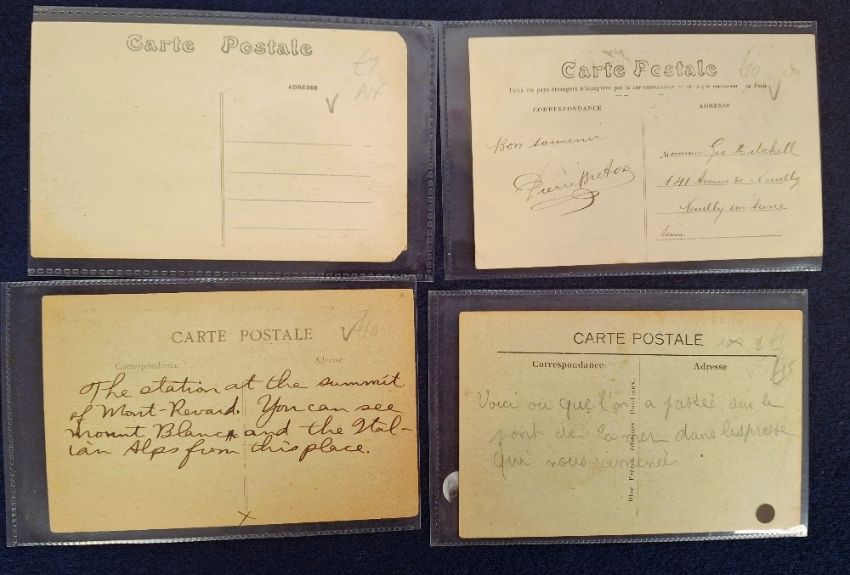 Carte Postale
ADRESSE
Carte Postale
Tous les pays étrangers n'acceptent pas la correspondance
CORRESPONDANCE
ADRESSE
Bon souvenir
Pierre Breton
Monsieur Geo Mitchell
141 Avenue de Neuilly
Neuilly sur Seine
Seine
CARTE POSTALE
Correspondance
Adresse
The station at the summit
of Mont-Revard. You can see
mount Blanc and the Ital-
ian Alps from this place.
x
CARTE POSTALE
Correspondance
Adresse
Voici où que l'on a passée sur le
pont de la mer dans
qui nous
Bloc Frères, éditeurs